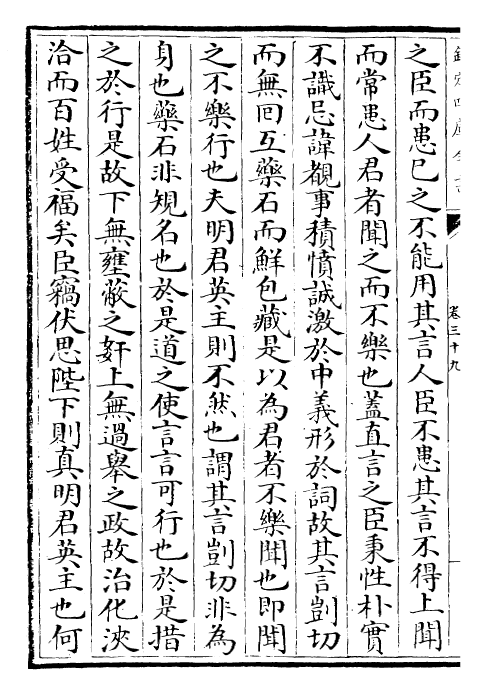 之臣而患已之不能用其言人臣不患其言不得上聞
而常患人君者聞之而不樂也蓋直言之臣秉性朴實
不識忌諱覩事積憤誠激於中義形於詞故其言剴切
而無回互藥石而鮮包藏是以為君者不樂聞也即聞
之不樂行也夫明君英主則不然也謂其言剴切非為
身也藥石非䂓名也於是道之使言言可行也於是措
之於行是故下無壅蔽之奸上無過舉之政故治化浹
洽而百姓受福矣臣竊伏思陛下則真明君英主也何
卷三十九